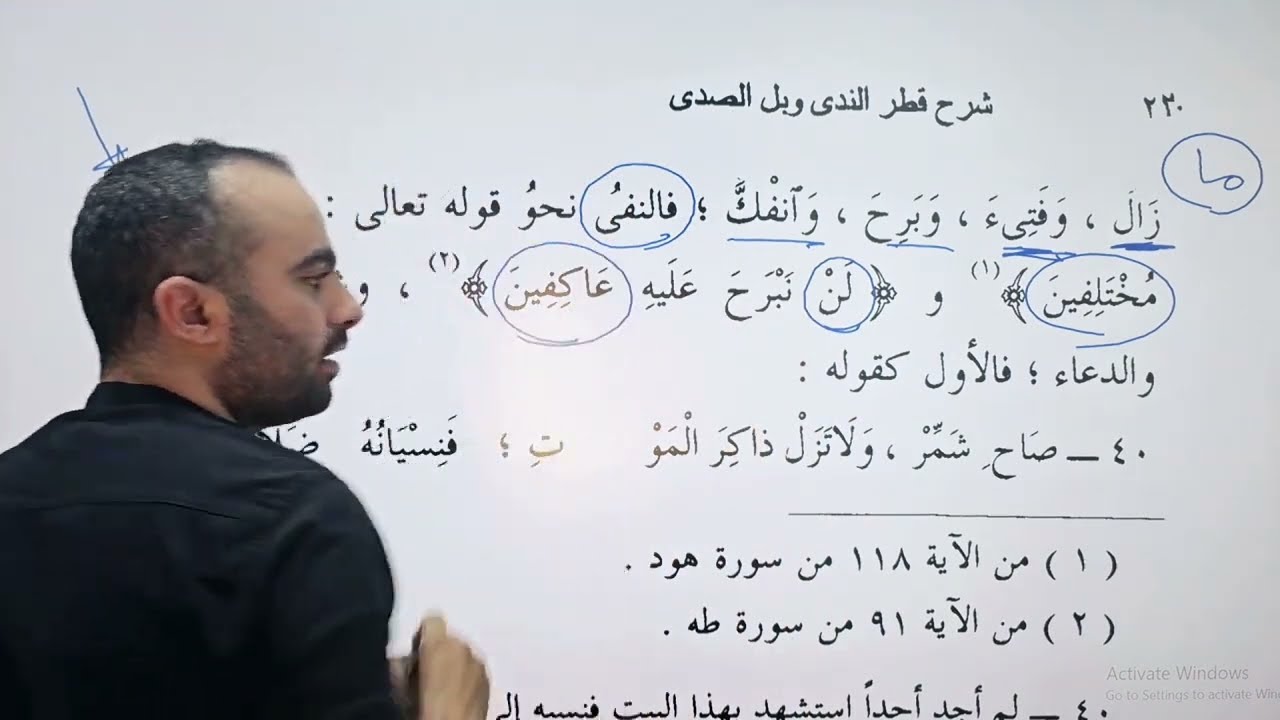 ٢٣٠ شرح قطر الندى وبل الصدى
ما
زَالَ ، وَفَتِىءَ ، وَبَرِحَ ، وَٱنْفَكَّ ؛ فالنفىُ نحوُ قوله تعالى :
مُخْتَلِفِينَ﴾ (١) و ﴿لَنْ نَبْرَحَ عَلَيهِ عَاكِفِينَ﴾ (٢) ، و
والدعاء ؛ فالأول كقوله :
٤٠ ـــ صَاحِ شَمِّرْ ، وَلَاتَزَلْ ذاكِرَ الْمَوْ تِ ؛ فَنِسْيَانُهُ
( ١ ) من الآية ١١٨ من سورة هود .
( ٢ ) من الآية ٩١ من سورة طه .
٤٠ ـــ لم أجد أحداً استشهد بهذا البيت فنسبه إلى
Activate Windows
Go to Settings to activate